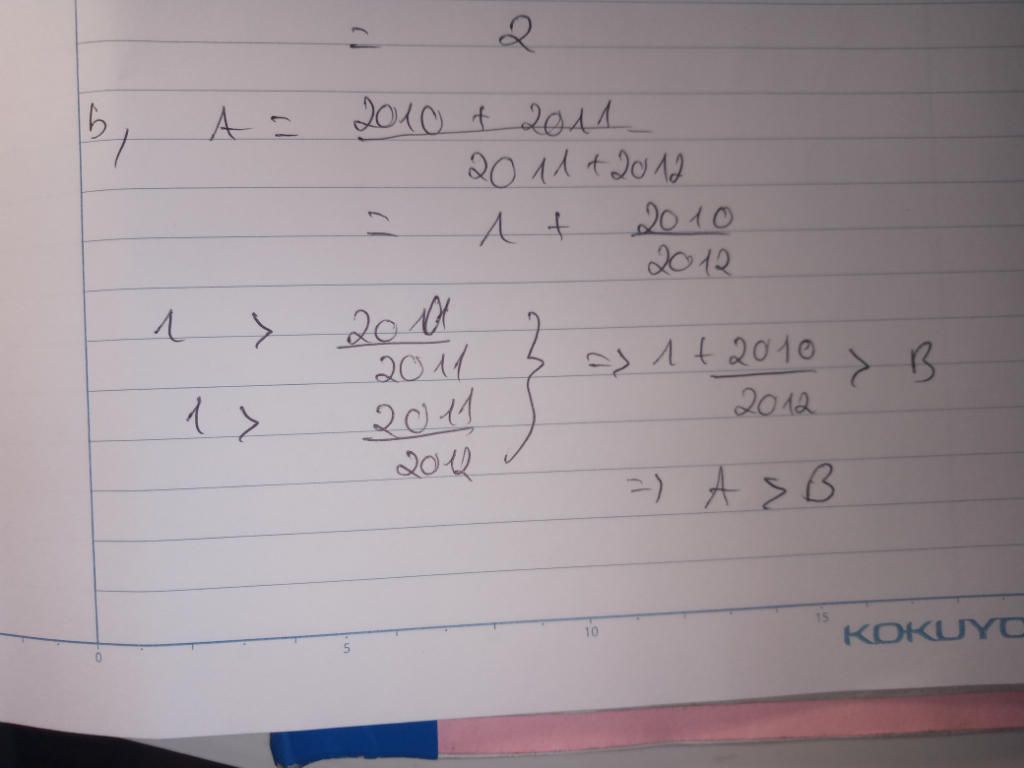 = 2
b, A = 2010 + 2011
2011 + 2012
= 1 + 2010
2012
1 > 
2011
1 > 2011
2012
=> 1 + 2010 > B
2012
=> A > B
0 5 10 15
KOKUYO